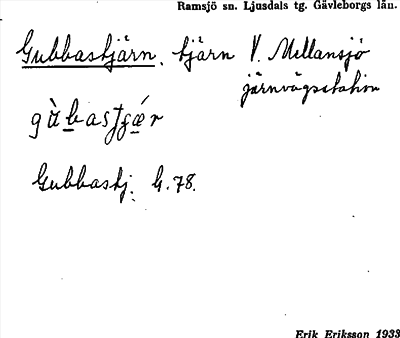 Ramsjö sn. Ljusdals tg. Gävleborgs län.
Gubbastjärn. tjärn V. Mellansjö
järnvägsstation
gùbastgǽr
Gubbastj. G. 78.
Erik Eriksson 1933